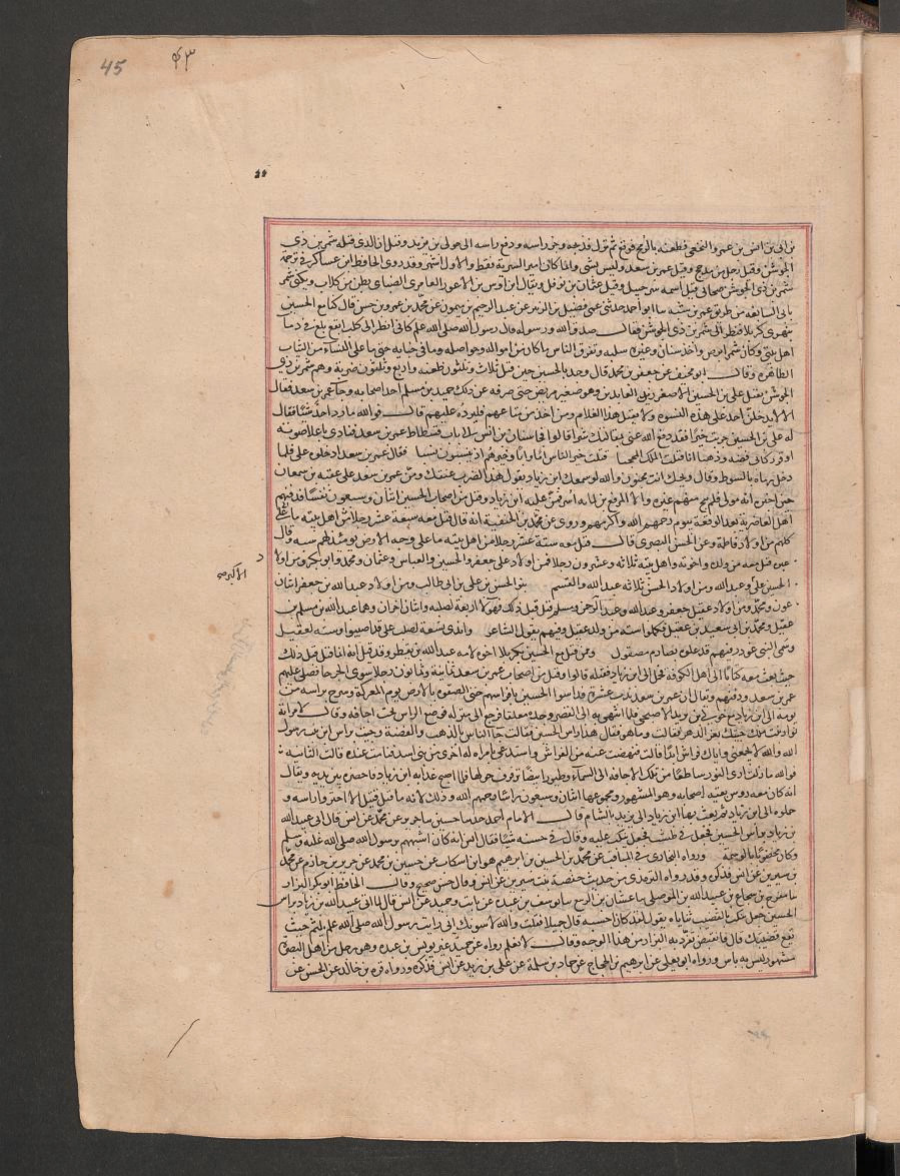 45
بن ابى بن انس بن عمرو النخعى فطعنه بالرمح فوقع ثم نزل فذبحه وحز راسه ودفع راسه الى خولى بن يزيد وقيل ان الذى قتله شمر بن ذى
الجوشن وقيل رجل من مذحج وقيل عمر بن سعد وليس بشى وانما كان امير السرية فقط والاول اشهر وقد روى الحافظ ابن عساكر فى ترجمة
شمر بن ذى الجوشن صحابى قيل اسمه شرحبيل وقيل عثمان بن نوفل ويقال ابن اوس بن الاعور العامرى الضبابى بطن من كلاب ويكنى شمر
بابى السابغه من طريق عمر بن شبه ابو احمد حدثنى عمى فضيل بن الزبير عن عبد الرحيم بن ميمون عن محمد بن عمرو بن حسن قال كنا مع الحسين
بنهرى كربلا فنظر الى شمر بن ذى الجوشن فقال صدق الله ورسوله قال رسول الله صلى الله علم كانى انظر الى كلب ابقع يلغ فى دما
اهل بيتى وكان شمر ابرص واخذ سنان وغيره سلبه وتفرق الناس ما كان من امواله وحواصله وما فى خبايه حتى ما على النساء من الثياب
الطاهره وقال ابو مخنف عن جعفر بن محمد قال وجد بالحسين حين قتل ثلاث وثلثون طعنه واربع وثلثون ضربة وهم شمر بن ذى
الجوشن بقتل على بن الحسين الاصغر زين العابدين وهو صغير مريض حتى صرفه عن ذلك حميد بن مسلم احد اصحابه وجا عمر بن سعد فقال
الا لا يدخلن احد على هذه النسوه ولا يقتل هذا الغلام ومن اخذ من متاعهم فليرده عليهم قال فوالله ما رد احد شيئا فقال
له على بن الحسين جزيت خيرا فقد دفع الله عنى بمقالتك شرا قالوا فجا سنان بن انس الى باب فسطاط عمر بن سعد فنادى باعلا صوته
اوقر ركابى فضه وذهبا انا قتلت الملك المحجبا قتلت خير الناس اما وابا وخيرهم اذ ينسبون نسبا فقال عمر بن سعد ادخلوه على فلما
دخل رماه بالسوط وقال ويحك انت مجنون والله لو سمعك ابن زياد تقول هذا لضرب عنقك ومن عمر بن سعد على عقبه بن سمعان
حين اخبره انه مولى فلم ينج منهم غيره والمرقع بن ثمامه اسر فمن عليه ابن زياد وقتل من اصحاب الحسين اثنان وسبعون نفسا فدفنهم
اهل الغاضرية بعد الوقعة بيوم رحمهم الله واكرمهم وروى عن محمد بن الحنفية انه قال قتل معه سبعة عشر رجلا من اهل بيته
كلهم من اولاد فاطمة وعن الحسن البصرى قال قتل معه ستة عشر رجلا من اهل بيته ما على وجه الارض يومئذ لهم شبه وقال
غيره قتل معه من ولده واخوته واهل بيته ثلاثه وعشرون رجلا فمن اولاد على جعفر والحسين والعباس وعثمان ومحمد وابو بكر ومن اولاد
الاكبر صح
الحسين على وعبد الله ومن اولاد الحسن ثلاثه عبد الله والقسم بنو الحسن بن على بن ابى طالب ومن اولاد عبد الله بن جعفر اثنان
عون ومحمد ومن اولاد عقيل جعفر وعبد الله وعبد الرحمن ومسلم قتل قبل ذلك فهولا اربعة لصلبه واثنان اخران وهما عبد الله بن مسلم بن
عقيل ومحمد بن ابى سعيد بن عقيل فكملوا سته من ولد عقيل وفيهم يقول الشاعر واندبى تسعة لصلب على قد اصيبوا وستة لعقيل
وسمى النبى غودر فيهم قد علوه بصارم مصقول وممن قتل مع الحسين بكربلا اخوه لامه عبد الله بن بقطر وقد قيل انه انما قتل قبل ذلك
حيث بعث معه كتابا الى اهل الكوفه فحمل الى ابن زياد فقتله قالوا وقتل من اصحاب عمر بن سعد ثمانية وثمانون رجلا سوى الجرحا فصلى عليهم
عمر بن سعد ودفنهم ويقال ان عمر بن سعد ندب عشرة فداسوا الحسين بافراسهم حتى الصقوه بالارض يوم المعركة وسرح براسه من
يومه الى ابن زياد مع خولى بن يزيد الاصبحى فلما انتهى به الى القصر وجده مغلقا فرجع الى منزله فوضع الراس تحت اجانه وقال لامراته
نوار بنت مالك جيتك بعز الدهر فقالت وما هو فقال هذا راس الحسين فقالت جا الناس بالذهب والفضة وجيت براس ابن بنت رسول
الله والله لا يجمعنى واياك فراش ابدا قالت فنهضت عنه من الفراش واستدعى بامراه له اخرى من بنى اسد فنامت عنده قالت الثانيه
فوالله ما زلت ارى النور ساطعا من تلك الاجانه الى السماء وطيورا بيضا ترفرف حولها فلما اصبح غدا به ابن زياد فاحضره بين يديه ويقال
انه كان معه روس بقيته اصحابه وهو المشهور ومجموعها اثنان وسبعون راسا رحمهم الله وذلك لانه ما قتل قتيل الا احتزوا راسه و
حملوه الى ابن زياد ثم بعث بها ابن زياد الى يزيد بالشام قال الامام احمد حدثنا حسين ثنا جرير عن محمد عن انس قال اتى عبيد الله
بن زياد براس الحسين فجعل فى طست فجعل ينكت عليه وقال فى حسنه شيئا فقال انس انه كان اشبههم برسول الله صلى الله عليه وسلم
وكان مخضوبا بالوسمة ورواه البخارى فى المناقب عن محمد بن الحسين بن ابرهيم هو ابن اسكاب عن حسين بن محمد عن جرير بن حازم عن محمد
بن سيرين عن انس فذكره وقد رواه الترمذى من حديث حفصة بنت سيرين عن انس وقال حسن صحيح وقال الحافظ ابو بكر البزار
ثنا مفرج بن شجاع بن عبيد الله الموصلى ثنا غسان بن الربيع ثنا يوسف بن عبده عن ثابت وحميد عن انس قال لما اتى عبيد الله بن زياد براس
الحسين جعل ينكت بالقضيب ثناياه يقول لقد كان احسبه قال جميلا فقلت والله لاسونك انى رايت رسول الله صلى الله علم يلثم حيث
يقع قضيبك قال فانقبض تفرد به البزار من هذا الوجه وقال لا نعلم رواه عن حميد غير يونس بن عبده وهو رجل من اهل البصرة
مشهور ليس به باس ورواه ابو يعلى عن ابرهيم بن الحجاج عن حماد بن سلمة عن على بن زيد عن انس فذكره ورواه قره بن خالد عن الحسن عن